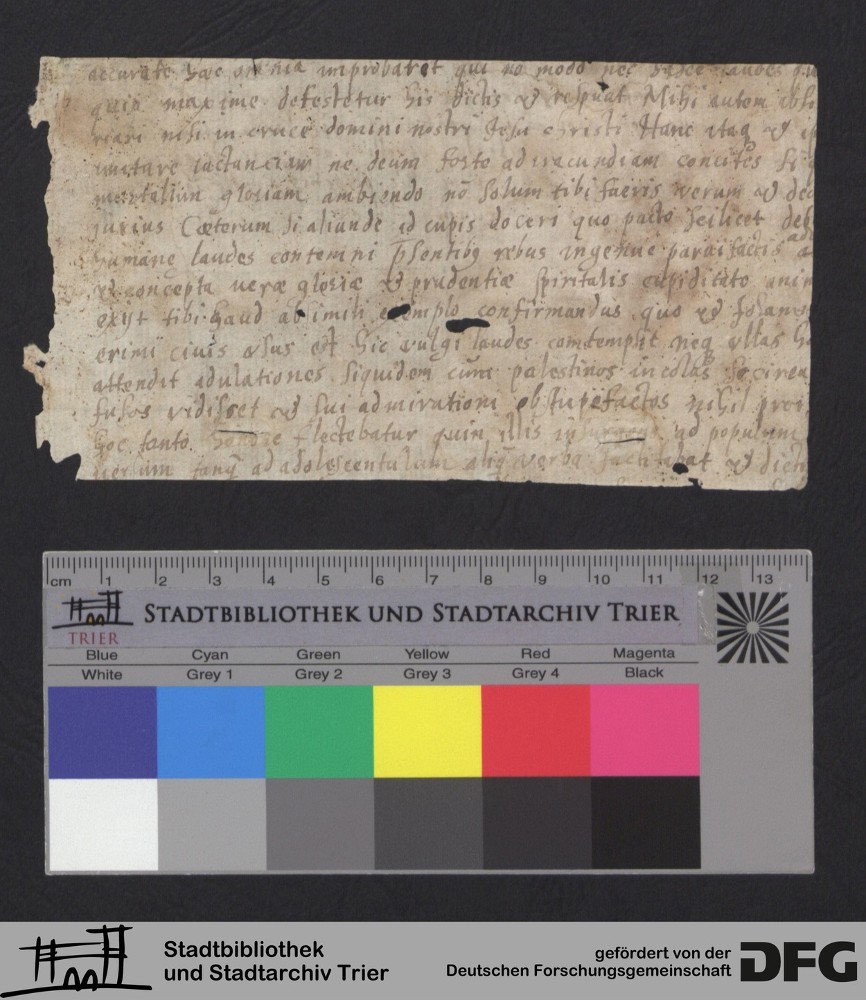 accurate hæc omnia improbaret qui nō modo nec laudes
quin maxime detestetur his dictis & respuat Mihi autem abs
riari nisi in cruce domini nostri Jesu christi Hanc itaq &
imitare iactanciam ne deum forte ad iracundiam concites si
mortalium gloriam ambiendo nō solum tibi verum & deo
iurius Cæterum si aliunde id cupis doceri quo pacto scilicet deb
humane laudes contemni psentibq rebus ingenue
& concepta veræ gloriæ & prudentiæ spiritalis cupiditate anim
tibi haud ab simili exemplo confirmandus quo & Johann
erimi civis usus est hic vulgi laudes contempsit neq ullas
attendit adulationes siquidem cum palestinos incolas
fusos vidisset & sui admirationi obstupefactos nihil
hoc tanto honore flectebatur quin illis ad populum
tanq ad adolescentulum aliq verba &
cm 1 2 3 4 5 6 7 8 9 10 11 12 13
TRIER
STADTBIBLIOTHEK UND STADTARCHIV TRIER
Blue Cyan Green Yellow Red Magenta
White Grey 1 Grey 2 Grey 3 Grey 4 Black
Stadtbibliothek
und Stadtarchiv Trier
gefördert von der
Deutschen Forschungsgemeinschaft
DFG